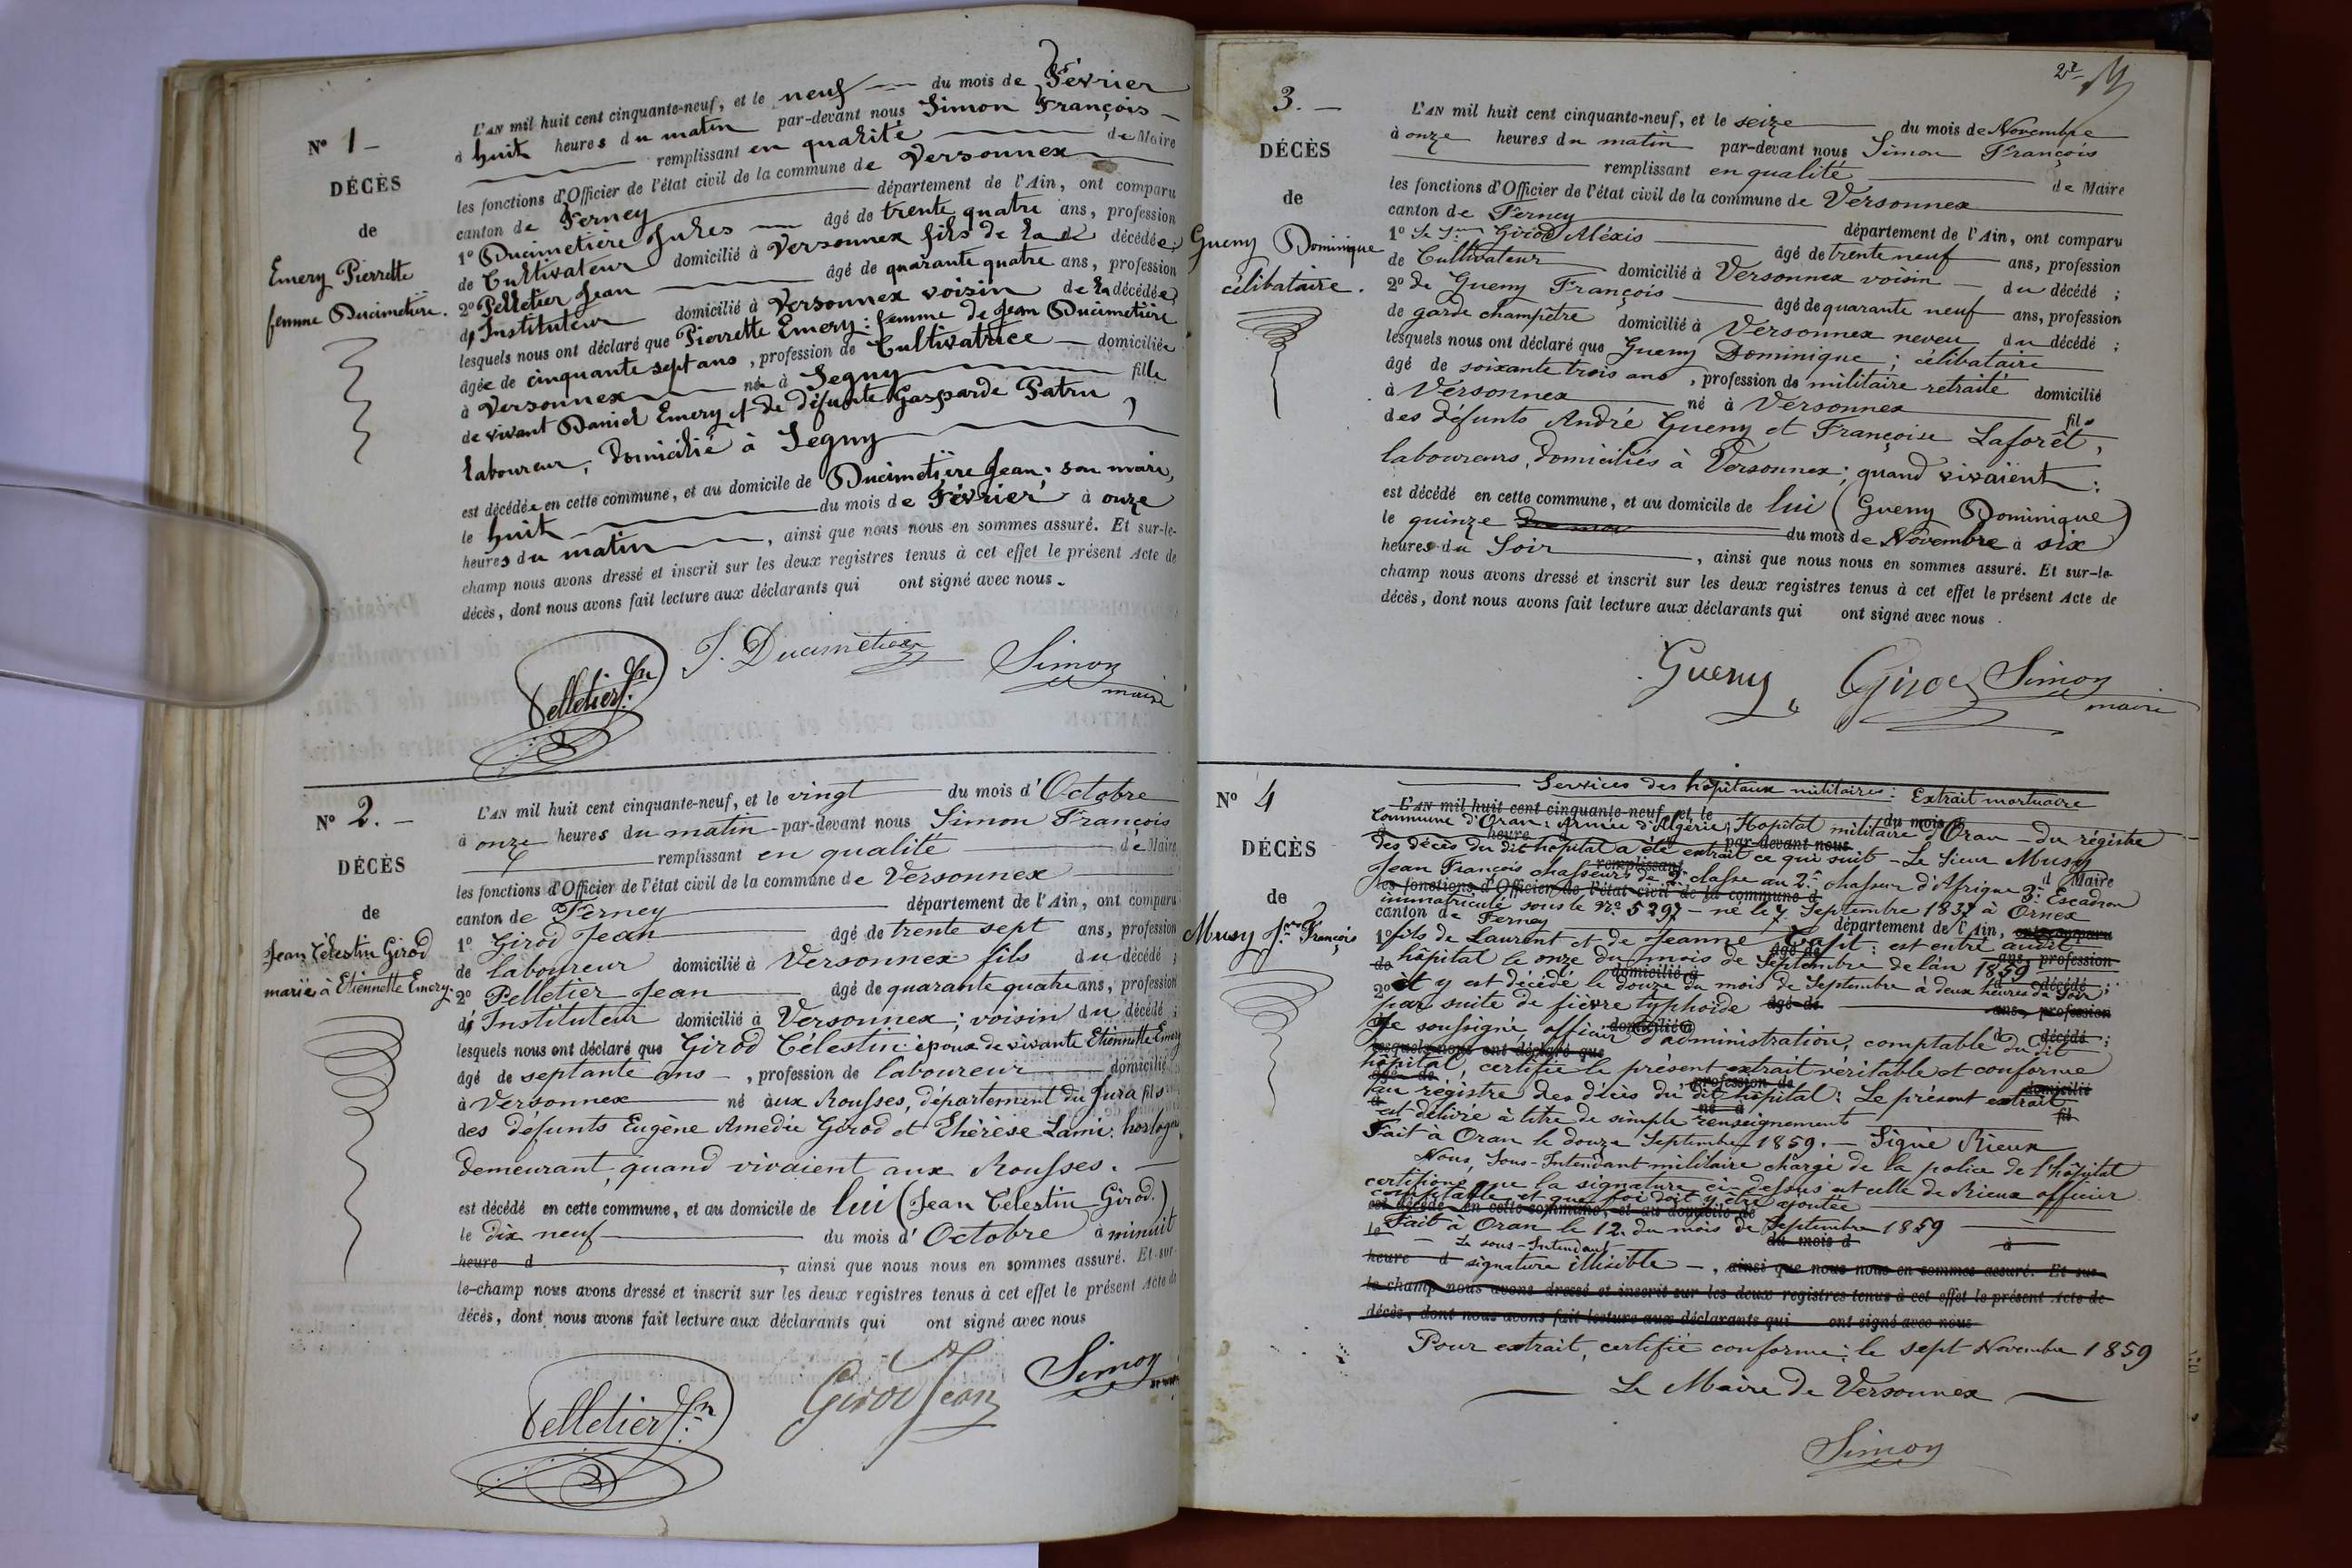 N° 1 –
DÉCÈS
de
Emery Pierrette
femme Ducimetière.
L'AN mil huit cent cinquante-neuf, et le neuf du mois de Février
à huit heures du matin par-devant nous Simon François
remplissant en qualité de Maire
les fonctions d'Officier de l'état civil de la commune de Versonnex
canton de Ferney département de l'Ain, ont comparu
1° Ducimetière Jules âgé de trente quatre ans, profession
de Cultivateur domicilié à Versonnex fils de la décédée;
2° Pelletier Jean âgé de quarante quatre ans, profession
d'Instituteur domicilié à Versonnex voisin de la décédée;
lesquels nous ont déclaré que Pierrette Emery: femme de Jean Ducimetière
âgée de cinquante sept ans, profession de Cultivatrice domiciliée
à Versonnex née à Segny fille
de vivant Daniel Emery et de défunte Gasparde Patru
laboureur, domicilié à Segny
est décédée en cette commune, et au domicile de Ducimetière Jean; son mari,
le huit du mois de Février à onze
heures du matin, ainsi que nous nous en sommes assuré. Et sur-le-
champ nous avons dressé et inscrit sur les deux registres tenus à cet effet le présent Acte de
décès, dont nous avons fait lecture aux déclarants qui ont signé avec nous.
Pelletier Jn. J. Ducimetière Simon
maire
N° 2. –
DÉCÈS
de
Jean Célestin Girod
marié à Etiennette Emery.
L'AN mil huit cent cinquante-neuf, et le vingt du mois d'Octobre
à onze heures du matin par-devant nous Simon François
remplissant en qualité de Maire
les fonctions d'Officier de l'état civil de la commune de Versonnex
canton de Ferney département de l'Ain, ont comparu
1° Girod Jean âgé de trente sept ans, profession
de laboureur domicilié à Versonnex fils du décédé;
2° Pelletier Jean âgé de quarante quatre ans, profession
d'Instituteur domicilié à Versonnex; voisin du décédé;
lesquels nous ont déclaré que Girod Célestin: époux de vivante Etiennette Emery
âgé de septante ans, profession de laboureur domicilié
à Versonnex né aux Rousses, département du Jura fils
des défunts Eugène Amedée Girod et Thérèse Lami: horlogers
demeurant, quand vivaient aux Rousses.
est décédé en cette commune, et au domicile de lui (Jean Célestin Girod.)
le dix neuf du mois d'Octobre à minuit
heure d, ainsi que nous nous en sommes assuré. Et sur-
le-champ nous avons dressé et inscrit sur les deux registres tenus à cet effet le présent Acte de
décès, dont nous avons fait lecture aux déclarants qui ont signé avec nous
Pelletier Jn. Girod Jean Simon
3. –
DÉCÈS
de
Gueny Dominique
célibataire.
L'AN mil huit cent cinquante-neuf, et le seize du mois de Novembre
à onze heures du matin par-devant nous Simon François
remplissant en qualité de Maire
les fonctions d'Officier de l'état civil de la commune de Versonnex
canton de Ferney département de l'Ain, ont comparu
1° Le Sr Girod Aléxis âgé de trente neuf ans, profession
de Cultivateur domicilié à Versonnex voisin du décédé;
2° de Gueny François âgé de quarante neuf ans, profession
de garde champêtre domicilié à Versonnex neveu du décédé;
lesquels nous ont déclaré que Gueny Dominique; célibataire
âgé de soixante trois ans, profession de militaire retraité domicilié
à Versonnex né à Versonnex fils
des défunts André Gueny et Françoise Laforêt,
laboureurs, domiciliés à Versonnex; quand vivaient:
est décédé en cette commune, et au domicile de lui (Gueny Dominique)
le quinze du mois de Novembre à six
heures du Soir, ainsi que nous nous en sommes assuré. Et sur-le-
champ nous avons dressé et inscrit sur les deux registres tenus à cet effet le présent Acte de
décès, dont nous avons fait lecture aux déclarants qui ont signé avec nous.
Gueny Girod Simon
maire
N° 4
DÉCÈS
de
Musy Jean François
Services des hôpitaux militaires: Extrait mortuaire
L'AN mil huit cent cinquante-neuf, et le du mois d
Commune d'Oran: Armée d'Algérie; Hopital militaire d'Oran – du régistre
heure par-devant nous
des décès du dit hopital a été extrait ce qui suit – Le Sieur Musy
remplissant d Maire
Jean François chasseurs de 2e classe au 2e chasseur d'Afrique 3e Escadron
les fonctions d'Officier de l'état civil de la commune d
immatriculé sous le N° 5297 – né le 7 Septembre 1837 à Ornex
canton de Ferney département de l'Ain, ont comparu
1° fils de Laurent et de Jeanne : est entré audit
âgé de ans, profession
de hôpital le onze du mois de Septembre de l'an 1859
domicilié à d décédé;
2° et y est décédé le douze du mois de Septembre à deux heures du Soir,
par suite de fièvre typhoïde âgé de ans, profession
domicilié à d décédé;
Je soussigné officier d'administration, comptable du dit
lesquels nous ont déclaré que
hôpital, certifie le présent extrait véritable et conforme
âgé de profession de domicilié
au régistre des décès du dit hôpital: Le présent extrait
à né à fil
est délivré à titre de simple renseignement
Fait à Oran le douze Septembre 1859. – Signé Rieux
Nous, Sous-Intendant militaire chargé de la police de l'hôpital
certifions que la signature ci-dessus est celle de Rieux officier
comptable et que foi doit y être ajoutée
est décédé en cette commune, et au domicile de
le Fait à Oran le 12 du mois de Septembre 1859
du mois d à
Le sous-Intendant
heure d signature illisible –, ainsi que nous nous en sommes assuré. Et sur-
le-champ nous avons dressé et inscrit sur les deux registres tenus à cet effet le présent Acte de
décès, dont nous avons fait lecture aux déclarants qui ont signé avec nous
Pour extrait, certifié conforme: le sept Novembre 1859
Le Maire de Versonnex
Simon